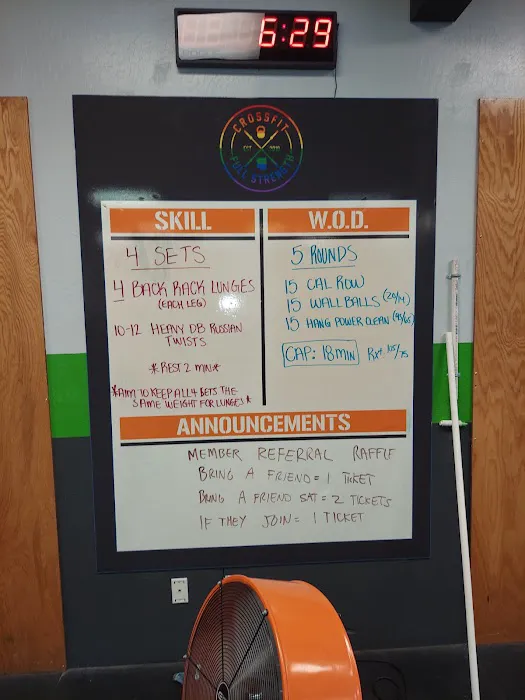 6:29
CROSSFIT
EST
FULL STRENGTH
SKILL
4 SETS
4 BACK RACK LUNGES
(EACH LEG)
10-12 HEAVY DB RUSSIAN
TWISTS
*REST 2 MIN*
*AIM TO KEEP ALL 4 SETS THE
SAME WEIGHT FOR LUNGES*
W.O.D.
5 ROUNDS
15 CAL ROW
15 WALL BALLS (20/14)
15 HANG POWER CLEAN (95/65)
CAP: 18 MIN RX+ 105/75
ANNOUNCEMENTS
MEMBER REFERRAL RAFFLE
BRING A FRIEND = 1 TICKET
BRING A FRIEND SAT = 2 TICKETS
IF THEY JOIN = 1 TICKET